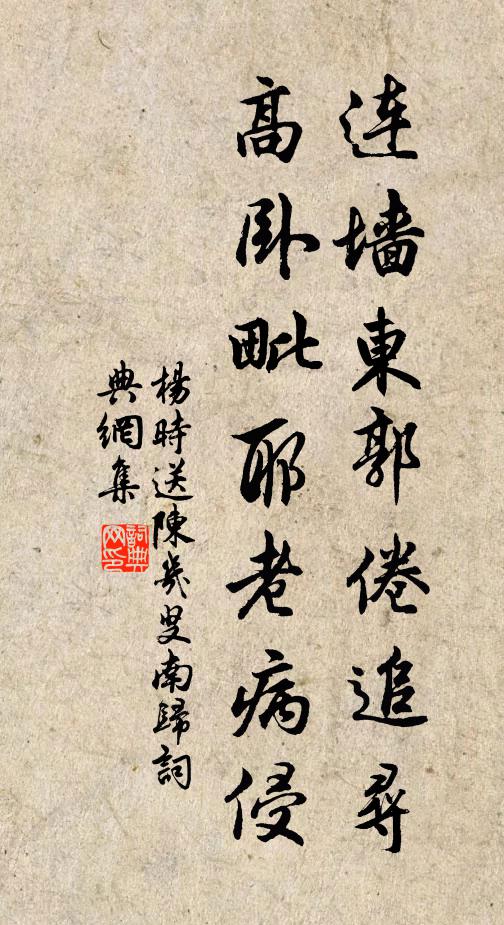 连墙東郭倦追尋
高卧毗耶老病侵
楊時送陳幾叟南歸詞
典網集
詞典網印